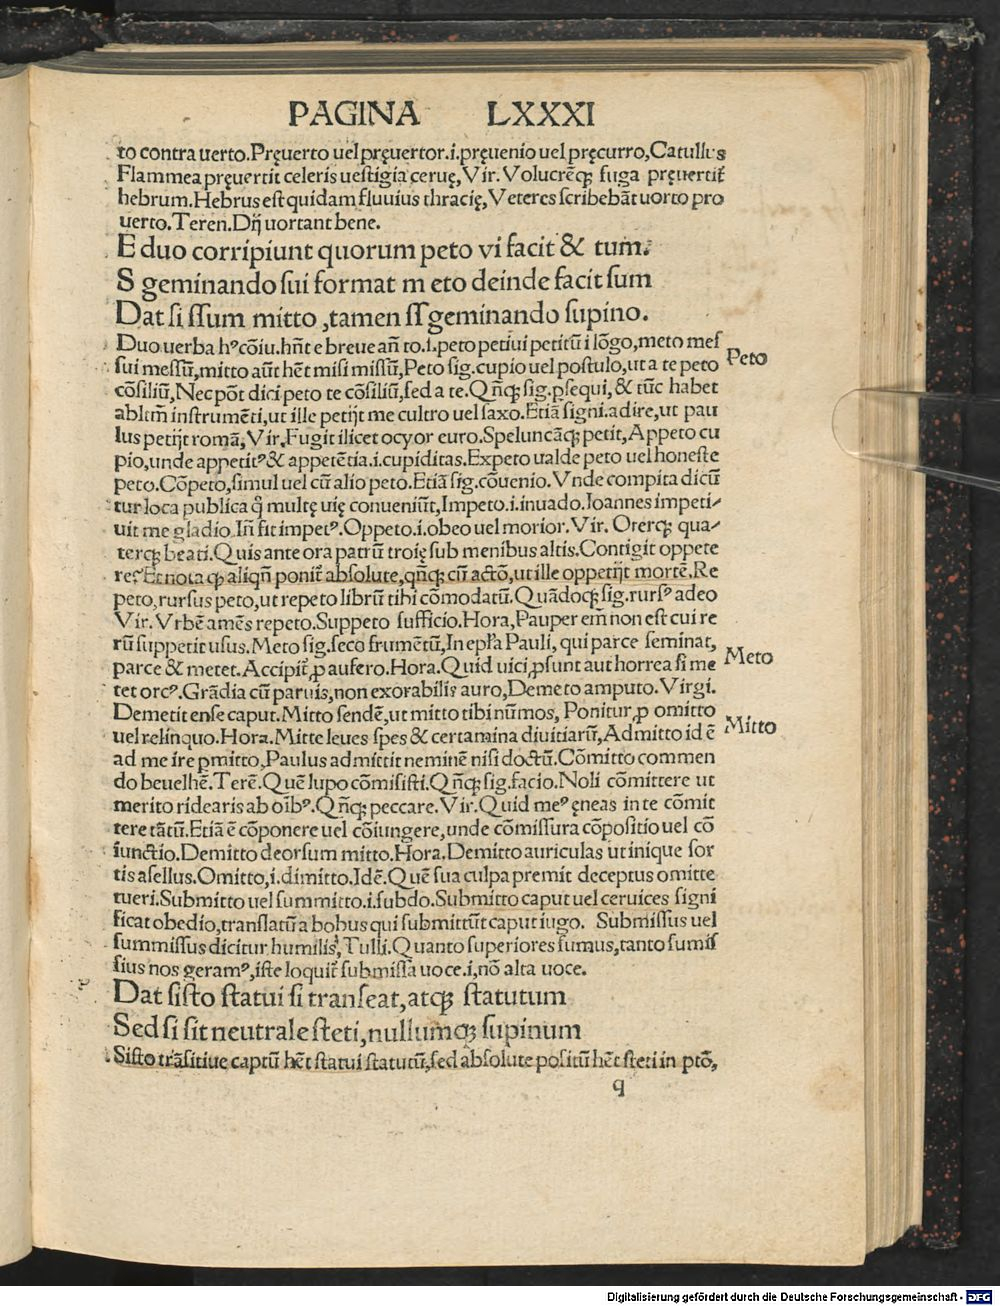 PAGINA LXXXI
to contra uerto.Pręuerto uel pręuertor.i.pręuenio uel pręcurro,Catullus
Flammea pręuertit celeris uestigia ceruę,Vir.Volucrēq; fuga pręuertit̃
hebrum.Hebrus est quidam fluuius thracię,Veteres scribebãt uorto pro
uerto.Teren.Dij̃ uortant bene.
E duo corripiunt quorum peto vi facit & tum.
S geminando sui format meto deinde facit sum
Dat si ssum mitto ,tamen ss geminando supino.
Duo uerba hꝰcõiu.hñt e breue añ to.i.peto petiui petitũ i lõgo,meto mes
sui messũ,mitto aũt hẽt misi missũ,Peto sig.cupio uel postulo,ut a te peto
Peto
cõsiliũ,Nec põt dici peto te cõsiliũ,sed a te.Qñq; sig.ꝑsequi,& tũc habet
abltm̃ instrumẽti,ut ille petijt me cultro uel saxo.Etiã signi.adire,ut pau
lus petijt romã,Vir.Fugit ilicet ocyor euro.Speluncãq; petit,Appeto cu
pio,unde appetitꝰ & appetẽtia.i.cupiditas.Expeto ualde peto uel honeste
peto.Cõpeto,simul uel cũ alio peto.Etiã sig.cõuenio.Vnde compita dicũ
tur loca publica q̃ multę uię conueniũt,Impeto.i.inuado.Ioannes impeti-
uit me gladio.Iñ fit impetꝰ.Oppeto.i.obeo uel morior.Vir. O terq; qua-
terq; beati.Quis ante ora patrũ troię sub menibus altis.Contigit oppete
re.Et nota ꝙ aliqñ ponit̃ absolute,qñq; cũ actõ,ut ille oppetijt mortẽ.Re
peto,rursus peto,ut repeto librũ tibi cõmodatũ.Quãdoq; sig.rursꝰ adeo
Vir.Vrbẽ amẽs repeto.Suppeto sufficio.Hora,Pauper em̃ non est cui re
rũ suppetit usus.Meto sig.seco frumẽtũ,In epl̃a Pauli, qui parce seminat,
parce & metet.Accipit̃ ꝓ aufero.Hora.Quid uici ꝓsunt aut horrea si me
Meto
tet orcꝰ.Grãdia cũ paruis,non exorabilis auro,Demeto amputo.Virgi.
Demetit ense caput.Mitto sendẽ,ut mitto tibi nũmos, Ponitur ꝓ omitto
Mitto
uel relinquo.Hora.Mitte leues spes & certamina diuitiarũ,Admitto id ẽ
ad me ire ꝑmitto,Paulus admittit neminẽ nisi doctũ.Cõmitto commen
do beuelhẽ.Terẽ.Quẽ lupo cõmisisti.Qñq; sig.facio.Noli cõmittere ut
merito ridearis ab oĩbꝰ.Qñq; peccare.Vir.Quid meꝰ ęneas in te cõmit
tere tãtũ.Etiã ẽ cõponere uel cõiungere,unde cõmissura cõpositio uel cõ
iunctio.Demitto deorsum mitto.Hora.Demitto auriculas ut inique sor
tis asellus.Omitto,i.dimitto.Idẽ.Quẽ sua culpa premit deceptus omitte
tueri.Submitto uel summitto.i.subdo.Submitto caput uel ceruices signi
ficat obedio,translatũ a bobus qui submittũt caput iugo. Submissus uel
summissus dicitur humilis,Tulli.Quanto superiores sumus,tanto sumis
sius nos geramꝰ,iste loquit̃ submissa uoce.i,nõ alta uoce.
Dat sisto statui si transeat,atq; statutum
Sed si sit neutrale steti,nullumq; supinum
Sisto trãsitiue captũ hẽt statui statutũ,sed absolute positũ hẽt steti in ptõ,
q
Digitalisierung gefördert durch die Deutsche Forschungsgemeinschaft - DFG